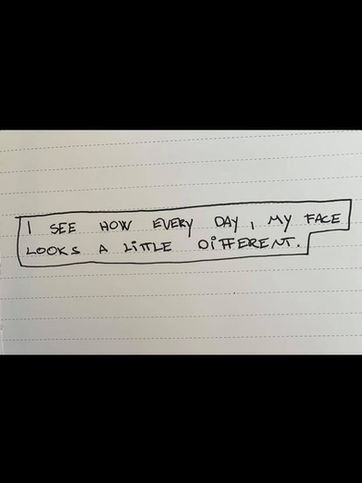 I SEE HOW EVERY DAY, MY FACE
LOOKS A LITTLE DIFFERENT.